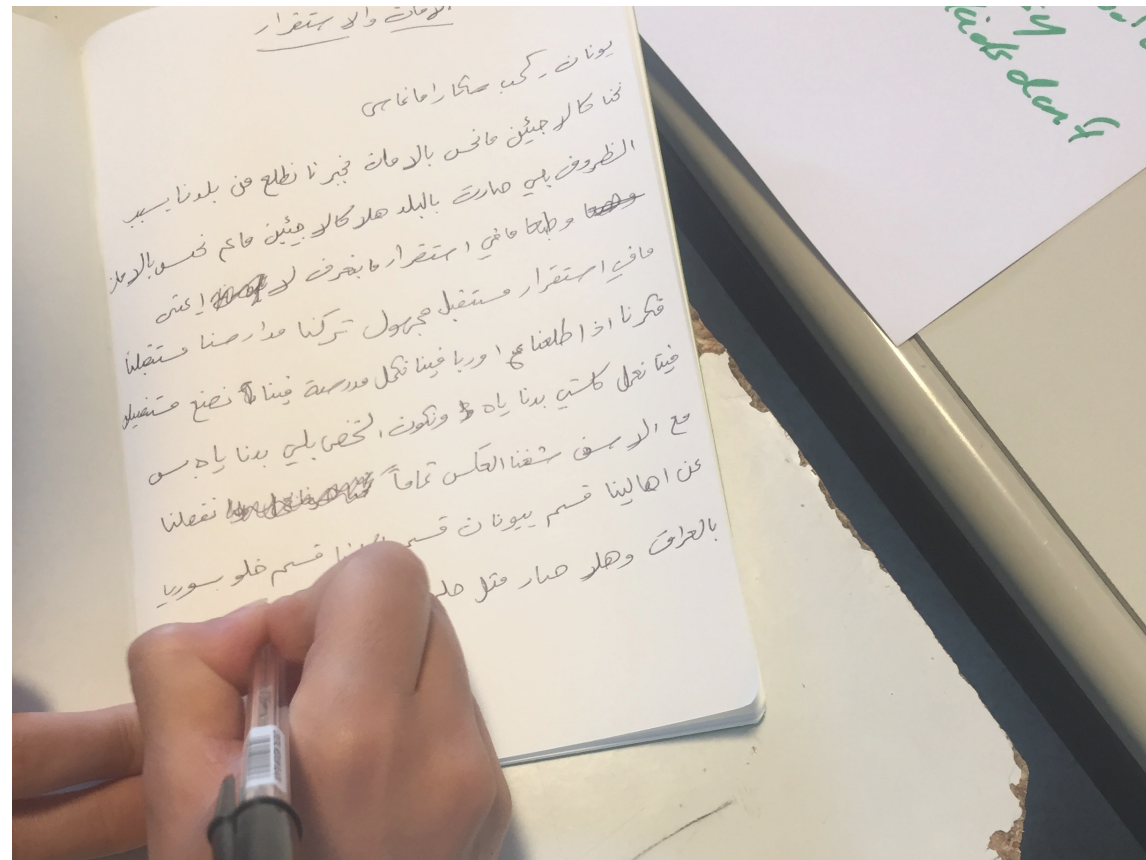 الامان والاستقرار
يونان ركب
نحنا كالاجيئين مانحس بالامان نجبرنا نطلع من بلدنا بسبب
الظروف يلي صارت بالبلد هلا كالاجيئين ماعم نحس بالامان
وطبعا مافي استقرار مابنعرف لا
مافي استقرار مستقبل مجهول تركنا مدارسنا مستقبلنا
فكرنا اذا طلعنا ع اوربا فينا نكمل مدرسة فينا نصنع
فينا نعمل كلشي بدنا ياه ونكون الشخص يلي بدنا ياه بس
مع الاسف شفنا العكس تماماً نفصلنا
عن اهالينا قسم بيونان قسم قسم ضلو بسوريا
بالعراق وهلا صار متل